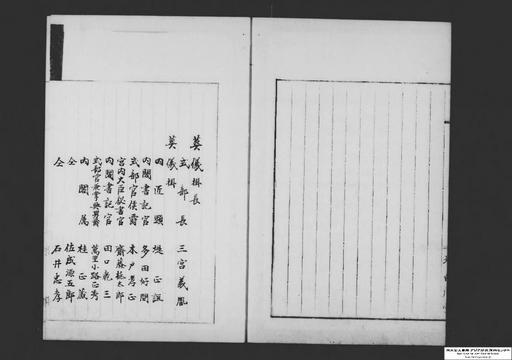 葬儀掛長
式部長 三宮義胤
葬儀掛
内匠頭 堤正誼
内閣書記官 多田好問
式部官侯爵 木戸孝正
宮内大臣秘書官 齋藤桃太郎
内閣書記官 田口乾三
式部官兼掌典男爵 萬里小路正秀
内閣属 桂正蔵
仝 佐成源五郎
仝 石井忠孝